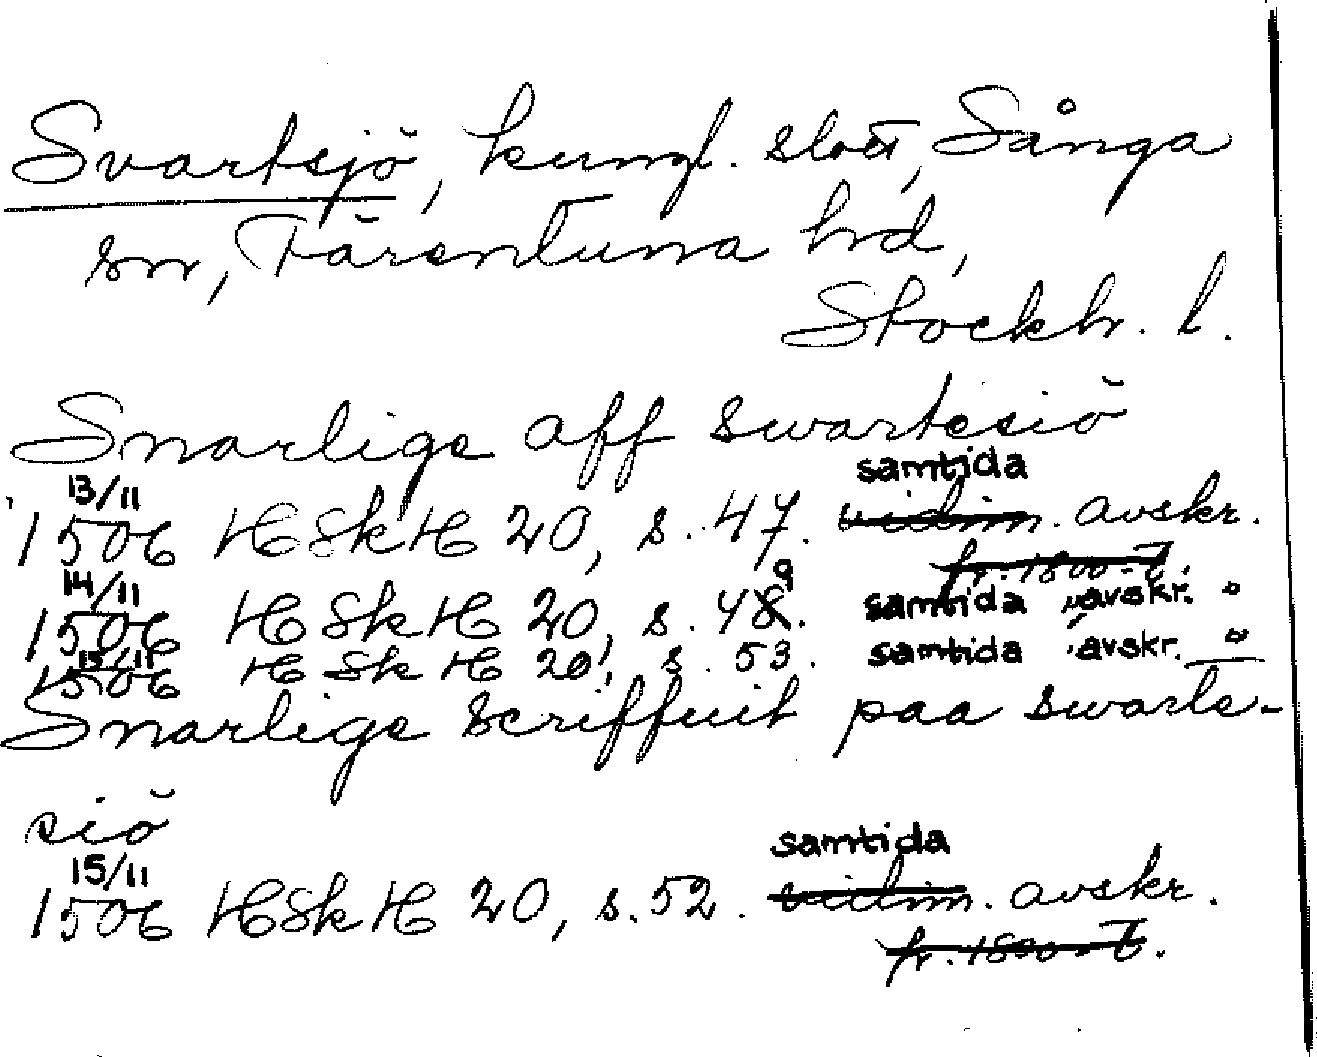 Svartsjö, kungl. slott, Sånga
sn, Färentuna hd,
Stockh. l.
Snarlige aff swartesiö
samtida
13/11
1506 HSkH 20, s. 47. vidim. avskr.
fr. 1800-t.
14/11
1506 HSkH 20, s. 489. samtida avskr.
15/11
1506 HSkH 20, s. 53. samtida avskr.
Snarlige scriffuit paa swarte-
siö
samtida
15/11
1506 HSkH 20, s. 52. vidim. avskr.
fr. 1800-t.